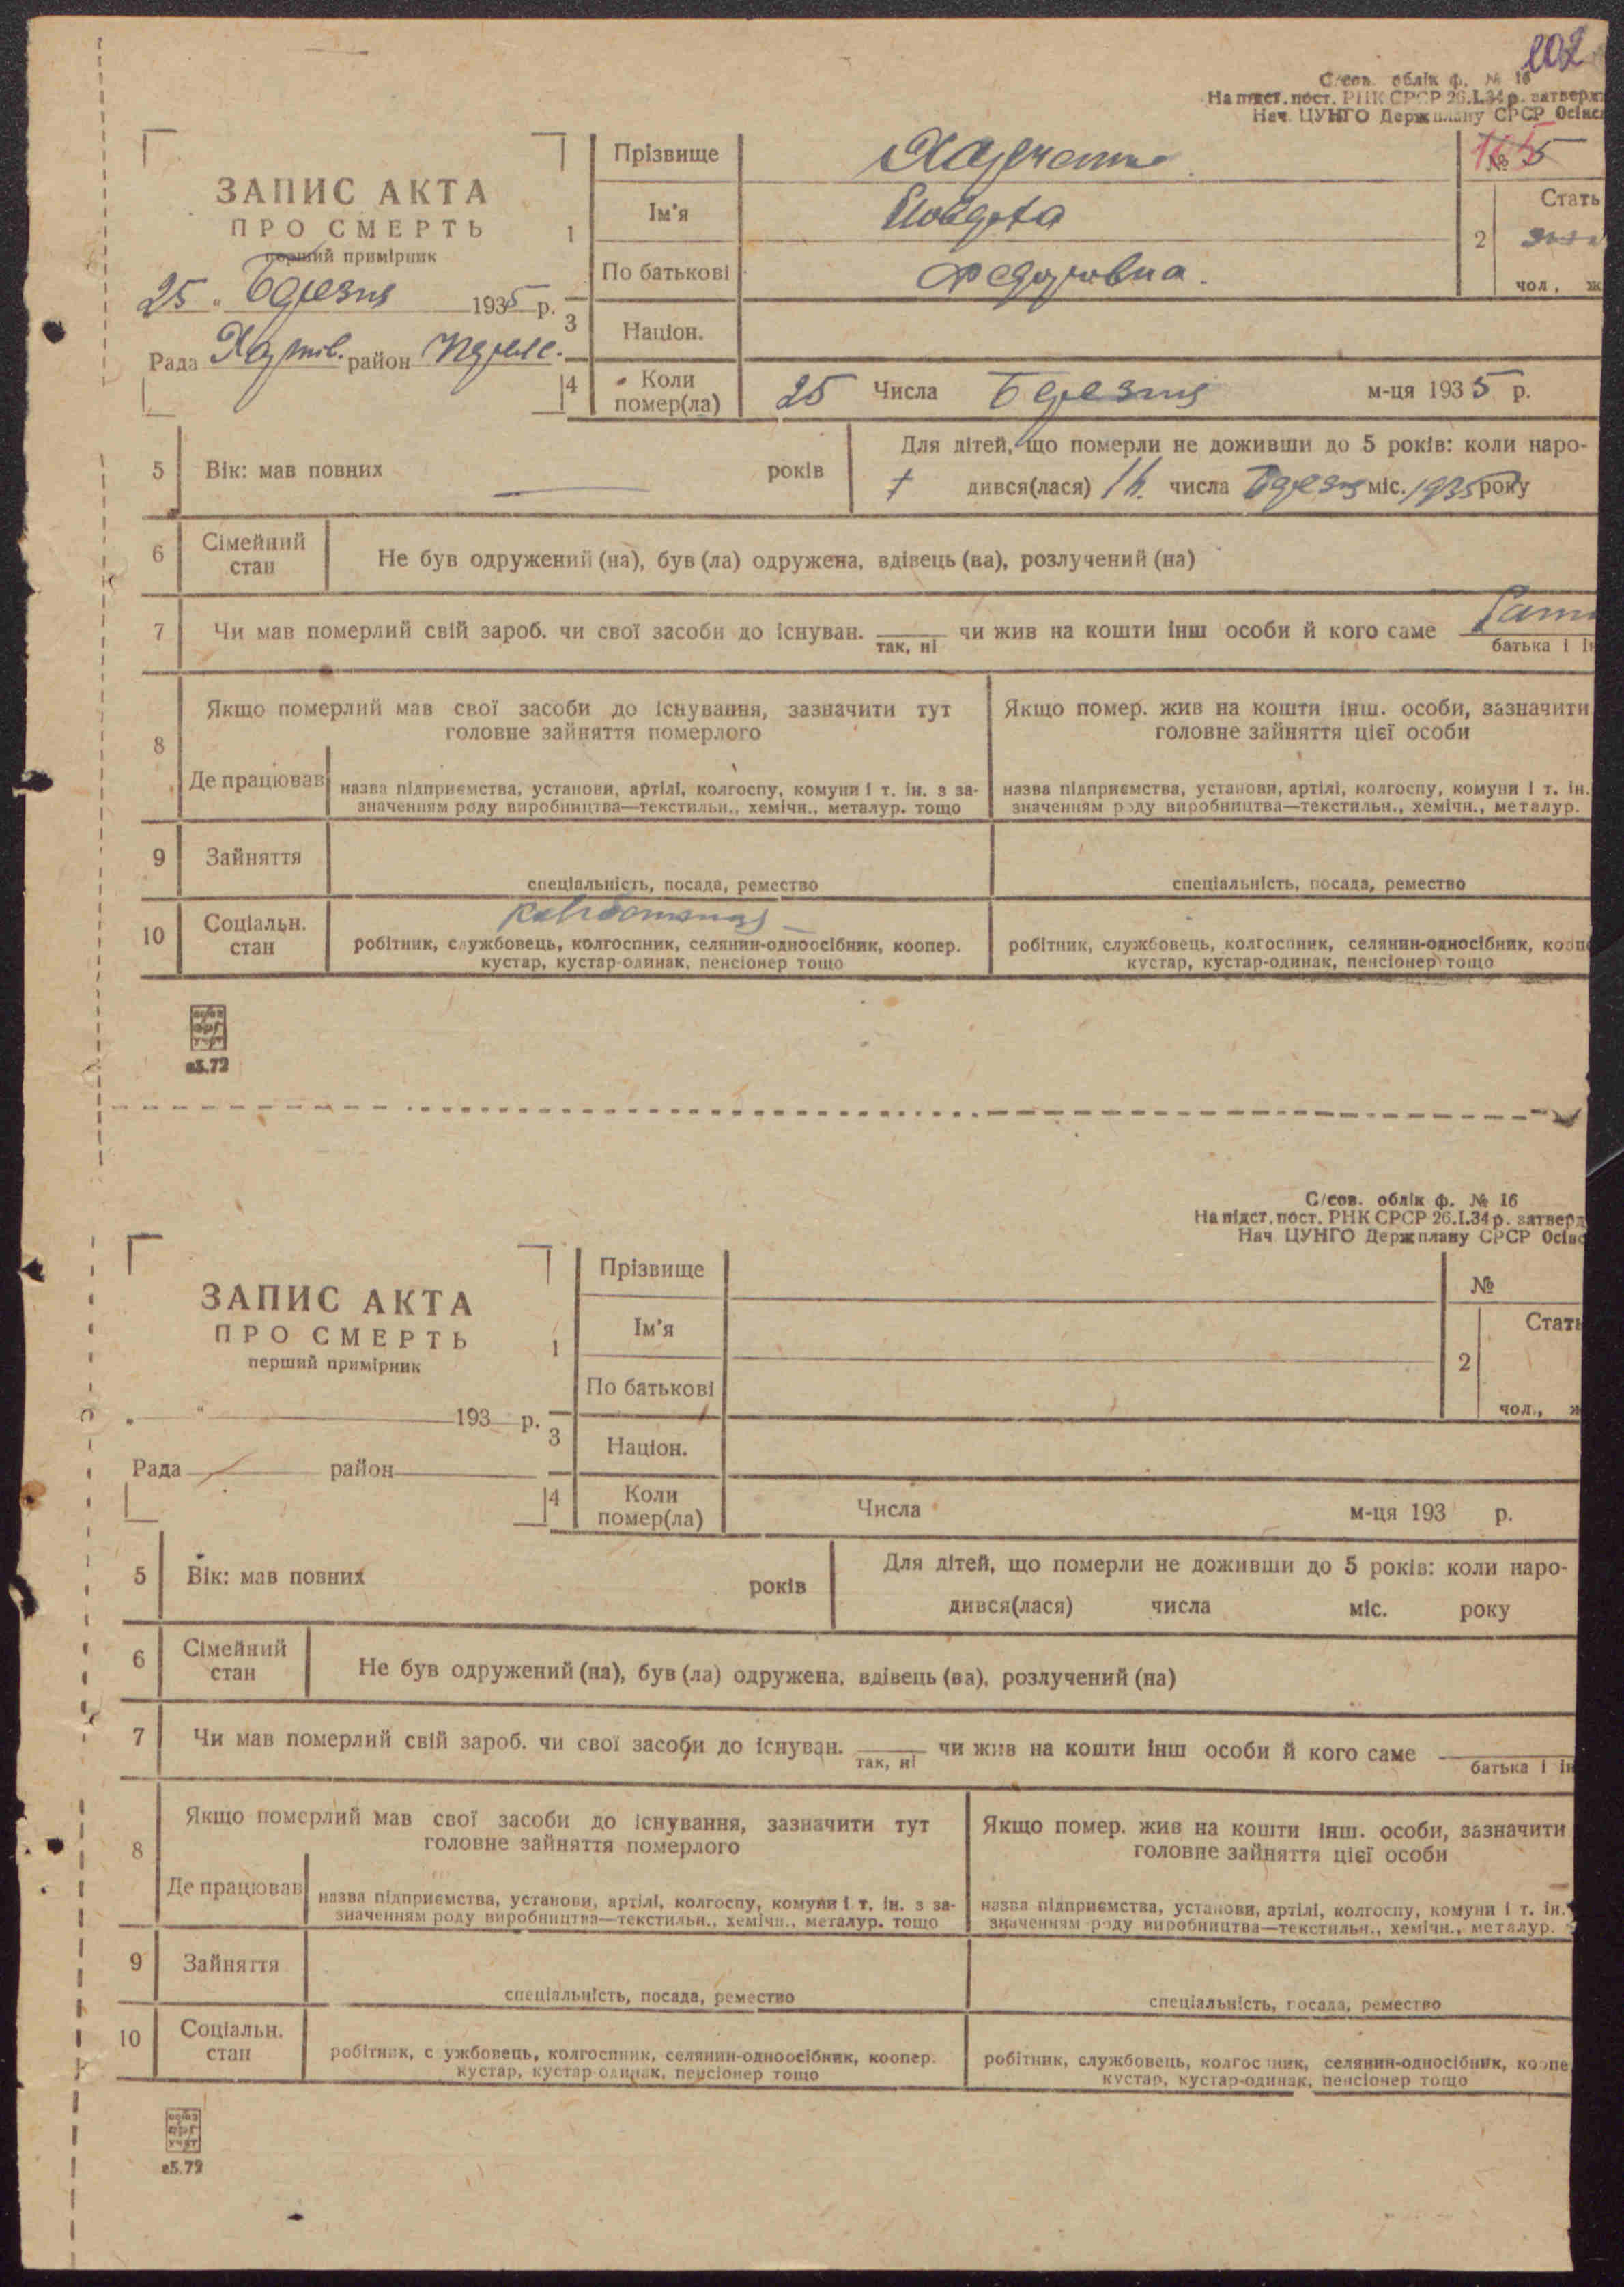 202
С/сов. облік ф. № 16
На підст. пост. РНК СРСР 26.I.34 р. затверд
Нач. ЦУНГО Держплану СРСР Осінс
ЗАПИС АКТА
ПРО СМЕРТЬ
перший примірник
25 " Березня 1935 р.
Рада район
1
Прізвище
Ім'я
По батькові Федоровна.
№ 5
2 Стать
чол., ж
3 Націон.
4 Коли помер(ла) 25 Числа Березня м-ця 1935 р.
5 Вік: мав повних — років
Для дітей, що померли не доживши до 5 років: коли наро-
дився(лася) числа Березня міс. 1935 року
6 Сімейний стан Не був одружений (на), був (ла) одружена, вдівець (ва), розлучений (на)
7 Чи мав померлий свій зароб. чи свої засоби до існуван. чи жив на кошти інш особи й кого саме
так, ні батька і ін
8 Якщо померлий мав свої засоби до існування, зазначити тут
головне зайняття померлого
Якщо помер. жив на кошти інш. особи, зазначити
головне зайняття цієї особи
Де працював
назва підприємства, установи, артілі, колгоспу, комуни і т. ін. з за-
значенням роду виробництва—текстильн., хемічн., металур. тощо
назва підприємства, установи, артілі, колгоспу, комуни і т. ін.
значенням роду виробництва—текстильн., хемічн., металур.
9 Зайняття
спеціальність, посада, ремество
спеціальність, посада, ремество
10 Соціальн. стан
робітник, службовець, колгоспник, селянин-одноосібник, коопер.
кустар, кустар-одинак, пенсіонер тощо
робітник, службовець, колгоспник, селянин-односібник, коопе
кустар, кустар-одинак, пенсіонер тощо
з5.72
С/сов. облік ф. № 16
На підст. пост. РНК СРСР 26.I.34 р. затверд
Нач. ЦУНГО Держплану СРСР Осінс
ЗАПИС АКТА
ПРО СМЕРТЬ
перший примірник
" 193 р.
Рада район
1
Прізвище
Ім'я
По батькові
№
2 Стать
чол., ж
3 Націон.
4 Коли помер(ла) Числа м-ця 193 р.
5 Вік: мав повних років
Для дітей, що померли не доживши до 5 років: коли наро-
дився(лася) числа міс. року
6 Сімейний стан Не був одружений (на), був (ла) одружена, вдівець (ва), розлучений (на)
7 Чи мав померлий свій зароб. чи свої засоби до існуван. чи жив на кошти інш особи й кого саме
так, ні батька і ін
8 Якщо померлий мав свої засоби до існування, зазначити тут
головне зайняття померлого
Якщо помер. жив на кошти інш. особи, зазначити
головне зайняття цієї особи
Де працював
назва підприємства, установи, артілі, колгоспу, комуни і т. ін. з за-
значенням роду виробництва—текстильн., хемічн., металур. тощо
назва підприємства, установи, артілі, колгоспу, комуни і т. ін.
значенням роду виробництва—текстильн., хемічн., металур.
9 Зайняття
спеціальність, посада, ремество
спеціальність, посада, ремество
10 Соціальн. стан
робітник, службовець, колгоспник, селянин-одноосібник, коопер.
кустар, кустар-одинак, пенсіонер тощо
робітник, службовець, колгоспник, селянин-односібник, коопе
кустар, кустар-одинак, пенсіонер тощо
з5.72